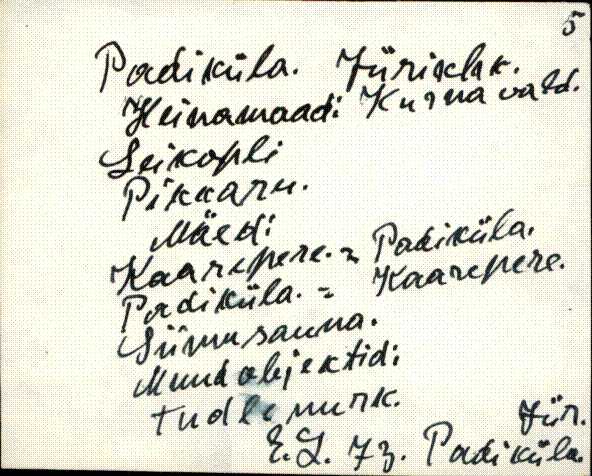 5
Padiküla. Jüri khk.
Heinamaad: Kurna vald.
Seikopli
Pikkaru.
Mäed:
Kaarepere. = Padiküla.
Padiküla. = Kaarepere.
Siimusauna.
Muud objektid:
nurk.
E.S. 73. Padiküla.
Jür.